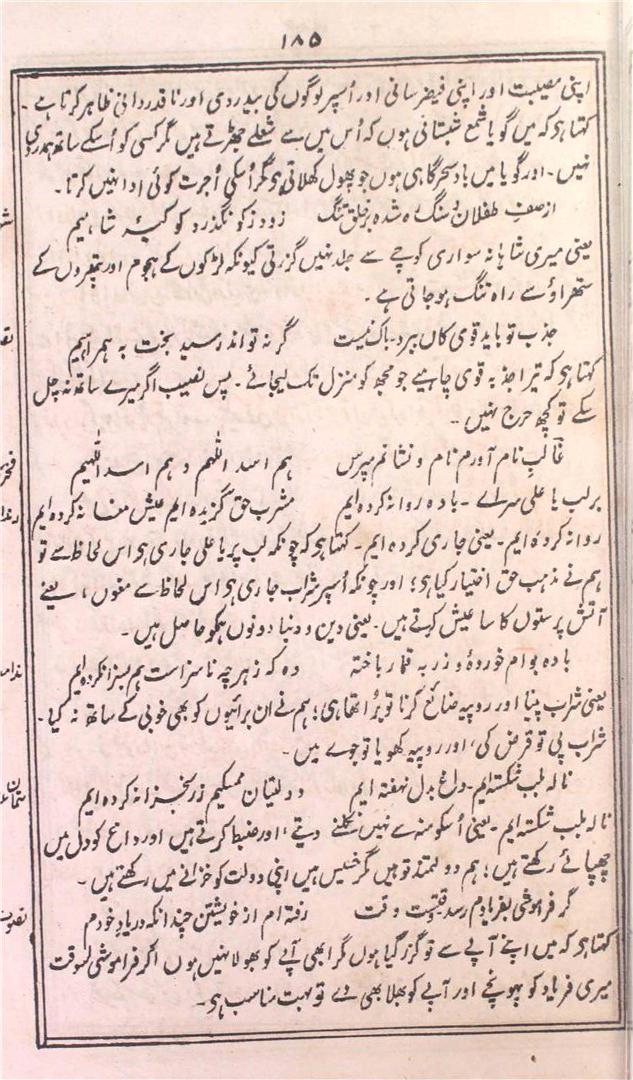 ۱۸۵
اپنی مصیبت اور اپنی فیضرسانی اور اُسپر لوگوں کی بیدردی اور ناقدردانی ظاہر کرتا ہے ۔
کہتا ہو کہ میں گویا شمع شبستانی ہوں کہ اُس میں سے شعلے جھڑتے ہیں مگر کسی کو اُسکے ساتھ ہمدردی
نہیں ۔ اور گویا میں باد سحرگاہی ہوں جو پھول کھلاتی ہو مگر اُسکی اُجرت کوئی ادا نہیں کرتا ۔
از صفِ طفلان و سنگ رہ شدہ بر خلق تنگ زود ز کو نگذرد کوکبۂ شاہیم
یعنی میری شاہانہ سواری کوچے سے جلد نہیں گزرتی کیونکہ لڑکوں کے ہجوم اور پتھروں کے
ستھراؤ سے راہ تنگ ہو جاتی ہے ۔
جذب تو باید قوی کاں ببرد باک نیست گر نہ تواند رسید بخت بہ ہمراہیم
کہتا ہو کہ تیرا جذبہ قوی چاہیے جو مجھ کو منزل تک لیجائے ۔ پس نصیب اگر میرے ساتھ نہ چل
سکے تو کچھ حرج نہیں ۔
غالبِ نام آورم نام و نشانم مپرس ہم اسد اللّٰہم و ہم اسد اللّٰہیم
برلب یا علی سراے ۔ بادہ روانہ کردہ ایم مشرب حق گزیدہ ایم عیش مغانہ کردہ ایم
روانہ کردہ ایم ۔ یعنی جاری کردہ ایم ۔ کہتا ہو کہ چونکہ لب پر یا علی جاری ہو اس لحاظ سے تو
ہم نے مذہب حق اختیار کیا ہو؛ اور چونکہ اُسپر شراب جاری ہو اس لحاظ سے مغوں ، یعنے
آتش پرستوں کا سا عیش کرتے ہیں ۔ یعنی دین و دنیا دونوں ہمکو حاصل ہیں ۔
بادہ بوام خوردہ و زر بہ قمار باختہ وہ کہ ز ہر چہ ناسزاست ہم بسزا نکردہ ایم
یعنی شراب پینا اور روپیہ ضائع کرنا تو بُرا تھا ہی؛ ہم نے ان برائیوں کو بھی خوبی کے ساتھ نہ کیا ۔
شراب پی تو قرض کی، اور روپیہ کھویا تو جوے میں ۔
نالہ بلب شکستہ ایم ۔ داغ بدل نہفتہ ایم دولتیان ممسکیم زر بخزانہ کردہ ایم
نالہ بلب شکستہ ایم ۔ یعنی اُسکو منہ سے نہیں نکلنے دیتے، اور ضبط کرتے ہیں اور داغ کو دل میں
چھپائے رکھتے ہیں؛ ہم دولتمند تو ہیں مگر خسیس ہیں اپنی دولت کو خزانے میں رکھتے ہیں ۔
گر فراموشی بفریادم رسد وقتست وقت رفتہ ام از خویشتن چندانکہ در یاد خودم
کہتا ہو کہ میں اپنے آپے سے تو گزر گیا ہوں مگر ابھی آپے کو بھولا نہیں ہوں اگر فراموشی اسوقت
میری فریاد کو پہونچے اور آپے کو بھلا بھی دے تو بہت مناسب ہو ۔